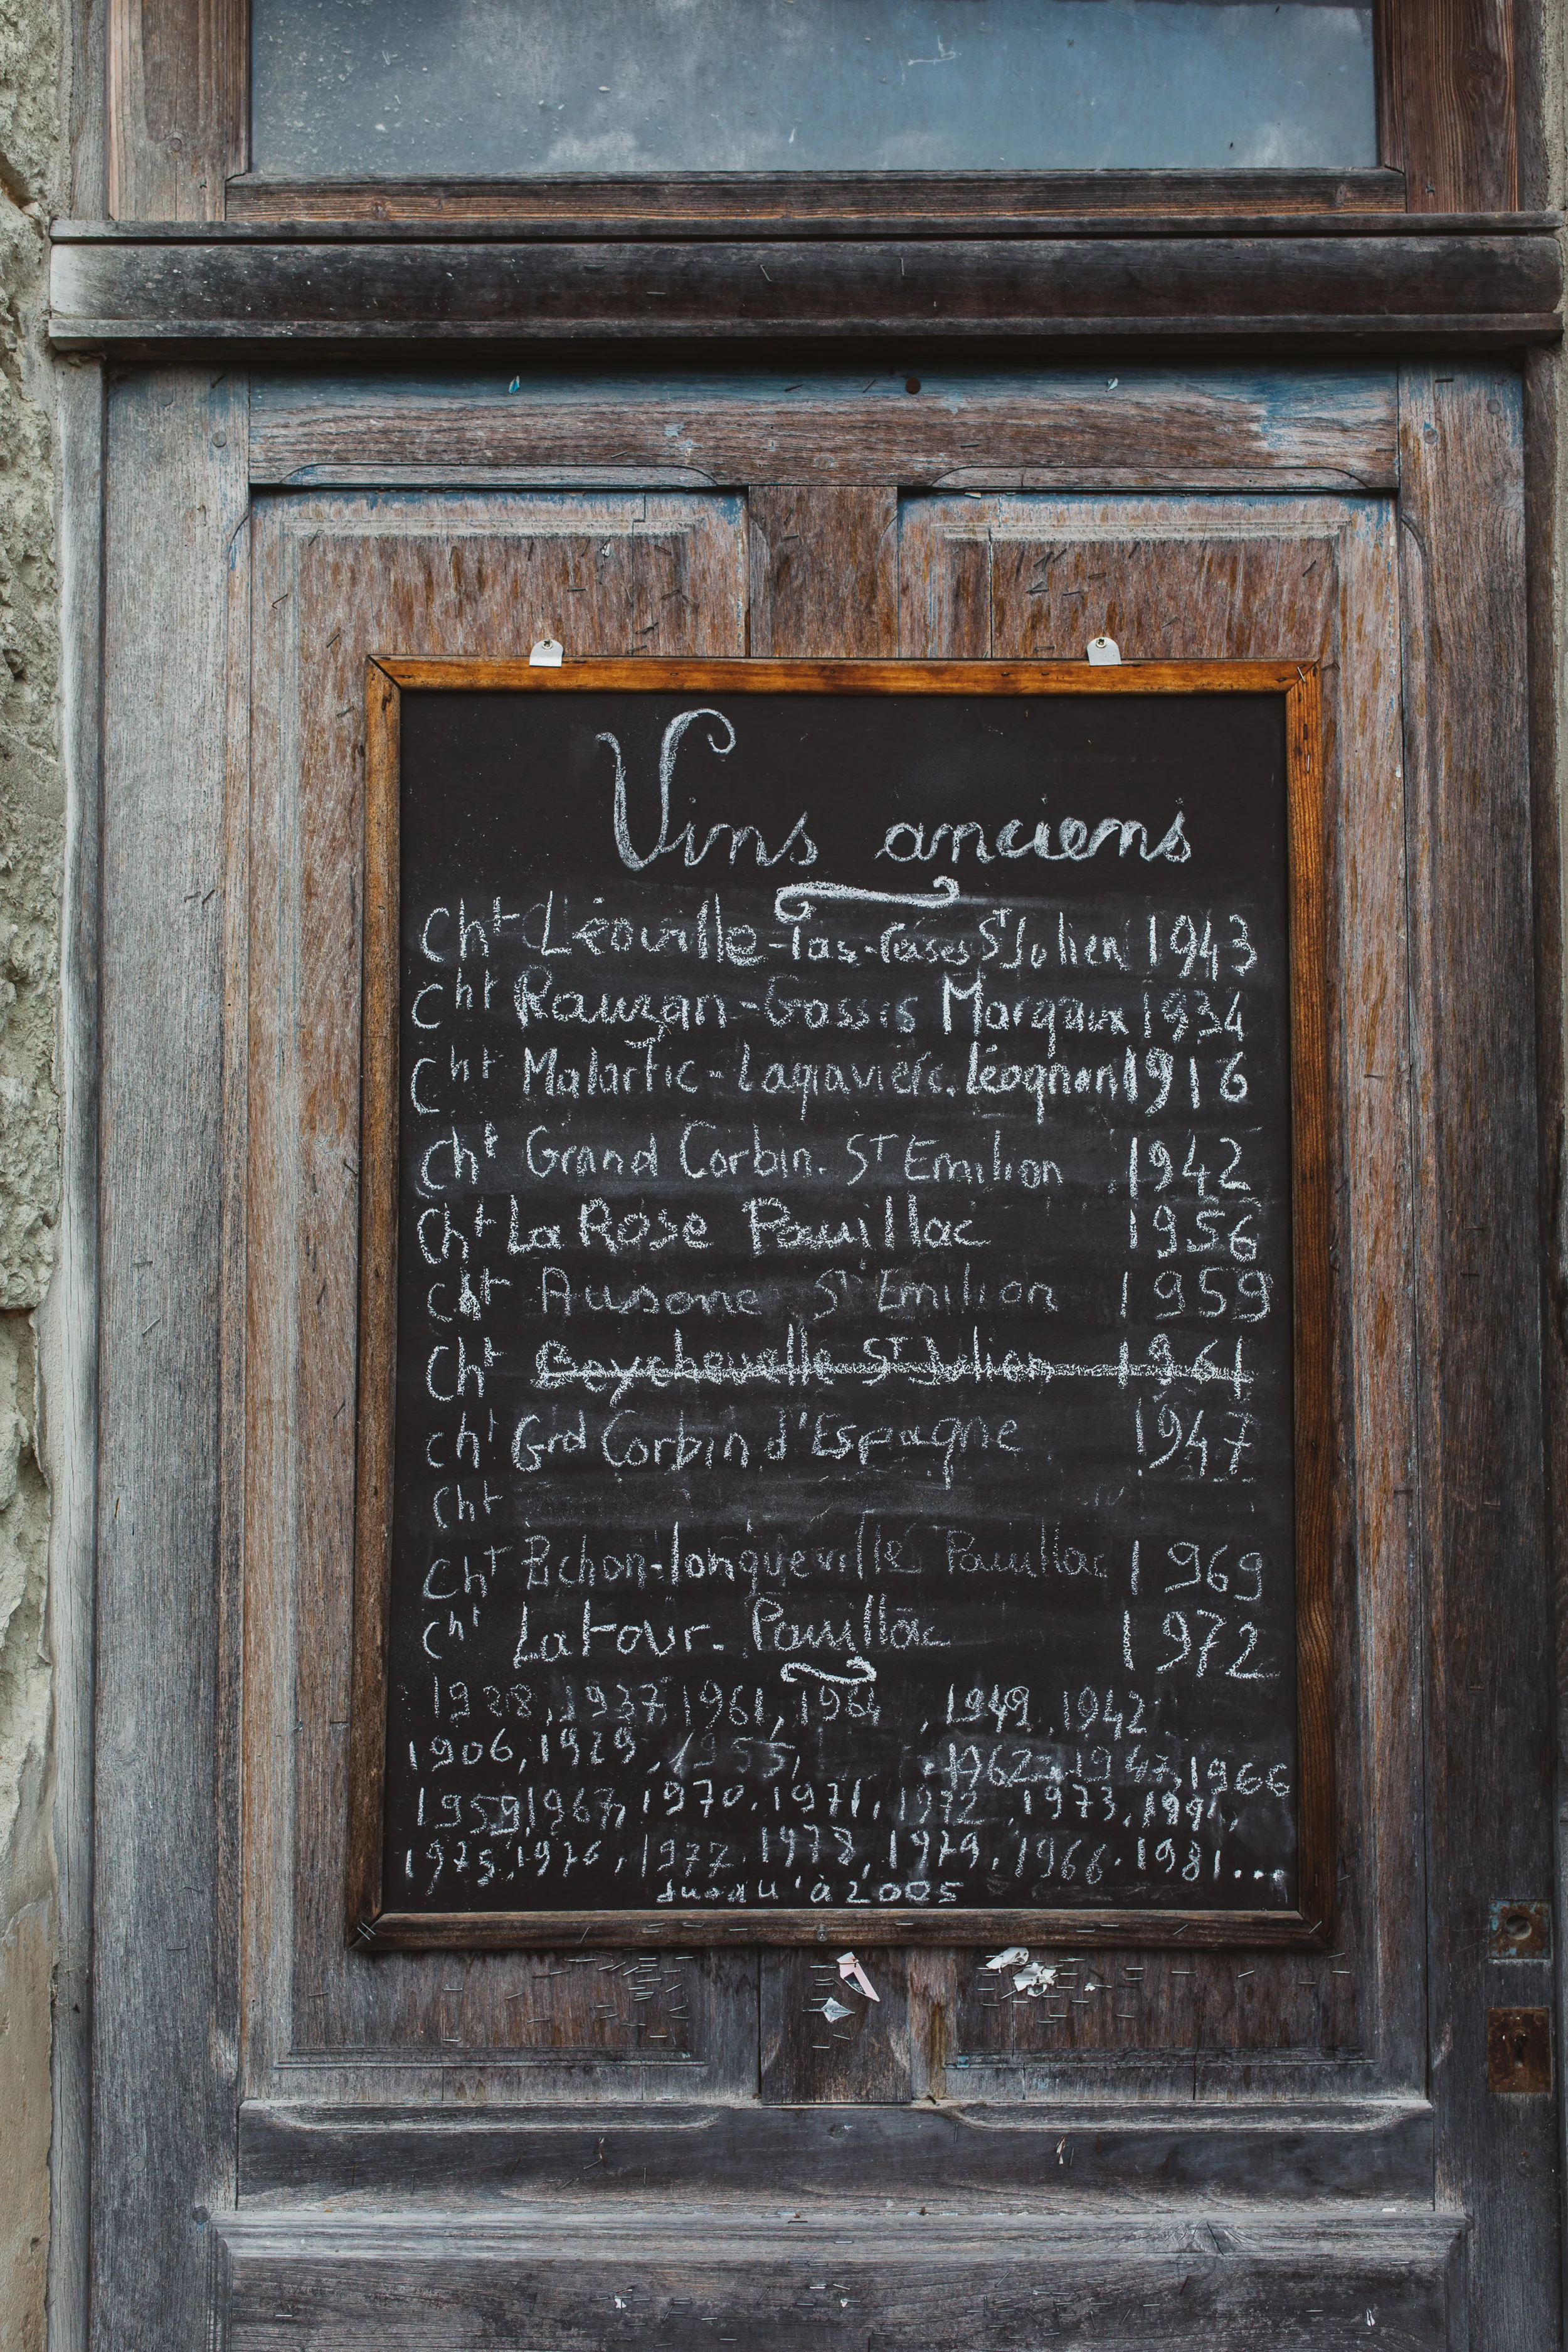 Vins anciens
Cht Léoville-las-Cases St Julien 1943
Cht Rauzan-Gassis Margaux 1934
Cht Malartic-Lagravière. Léognan 1916
Cht Grand Corbin. St Emilion 1942
Cht La Rose Pauillac 1956
Cht Ausone St Emilion 1959
Cht Beychevelle St Julien 1961
Cht Grd Corbin d'Espagne 1947
Cht
Cht Pichon-longueville Pauillac 1969
Cht Latour. Pauillac 1972
1928, 1937, 1961, 1964, 1949, 1942
1906, 1929, 1955, 1962, 1947, 1966
1959, 1967, 1970, 1971, 1972, 1973,
1975, 1976, 1977, 1978, 1979, 1966. 1981...
Jusqu'à 2005